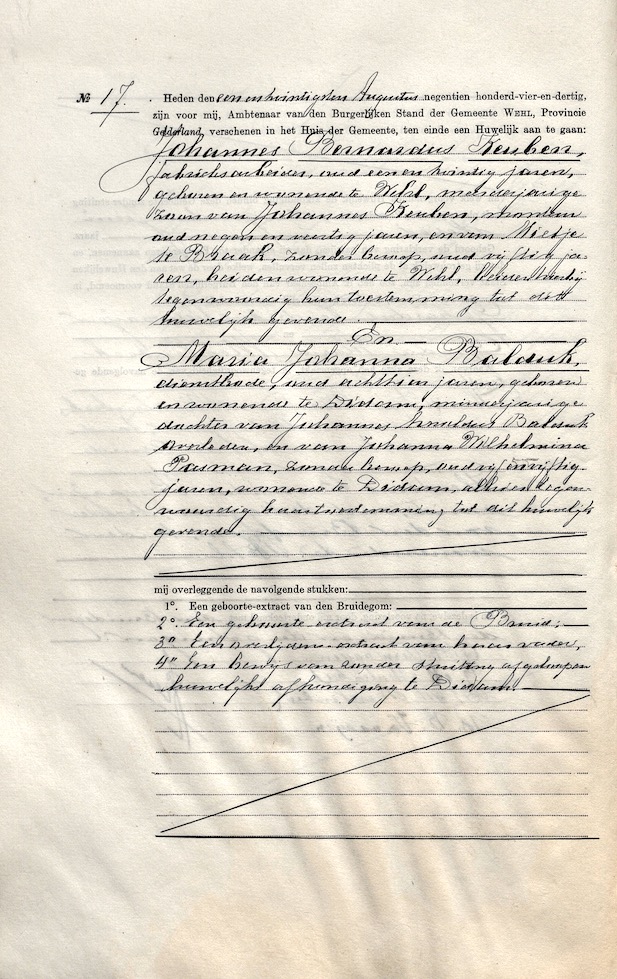 № 17. Heden den een en twintigsten Augustus negentien honderd-vier-en-dertig,
zijn voor mij, Ambtenaar van den Burgerlijken Stand der Gemeente WEHL, Provincie
Gelderland, verschenen in het Huis der Gemeente, ten einde een Huwelijk aan te gaan:
Johannes Bernardus Keuben,
fabrieksarbeider, oud een en twintig jaren,
geboren en wonende te Wehl, meerderjarige
zoon van Johannes Keuben,
oud negen en veertig jaren, en van Mietje
te Braak, zonder beroep, oud vijftig ja-
ren, beiden wonende te Wehl, hierbij
tegenwoordig hun toestemming tot dit
huwelijk gevende.
En
Maria Johanna Balduk,
dienstbode, oud achttien jaren, geboren
en wonende te Didam, minderjarige
dochter van Johannes Arnoldus Balduk
overleden, en van Johanna Wilhelmina
Pasman, zonder beroep, oud vijf en vijftig
jaren, wonende te Didam, alhier tegen-
woordig haar toestemming tot dit huwelijk
gevende.
mij overleggende de navolgende stukken:
1°. Een geboorte-extract van den Bruidegom:
2°. Een geboorte-extract van de Bruid;
3° Een overlijdens-extract van haar vader,
4° Een bewijs van zonder stuiting afgeloopen
huwelijks afkondiging te Didam.